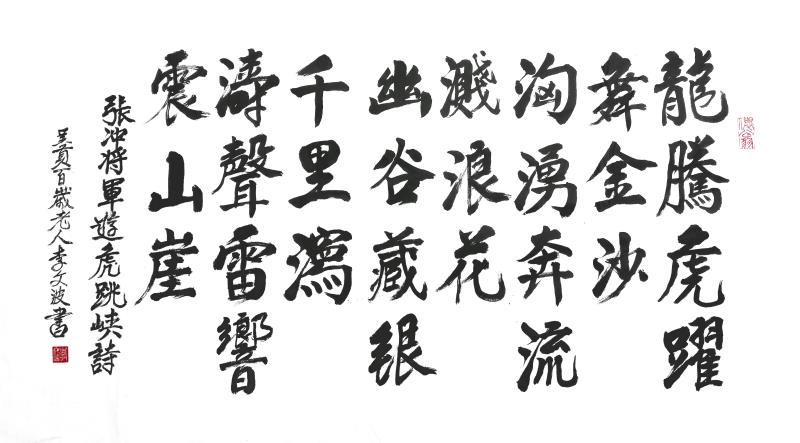 龍騰虎躍
舞金沙
洶湧奔流
濺浪花
幽谷藏銀
千里瀉
濤聲雷響
震山崖
張冲将軍遊虎跳峡詩
百歲老人李文波書